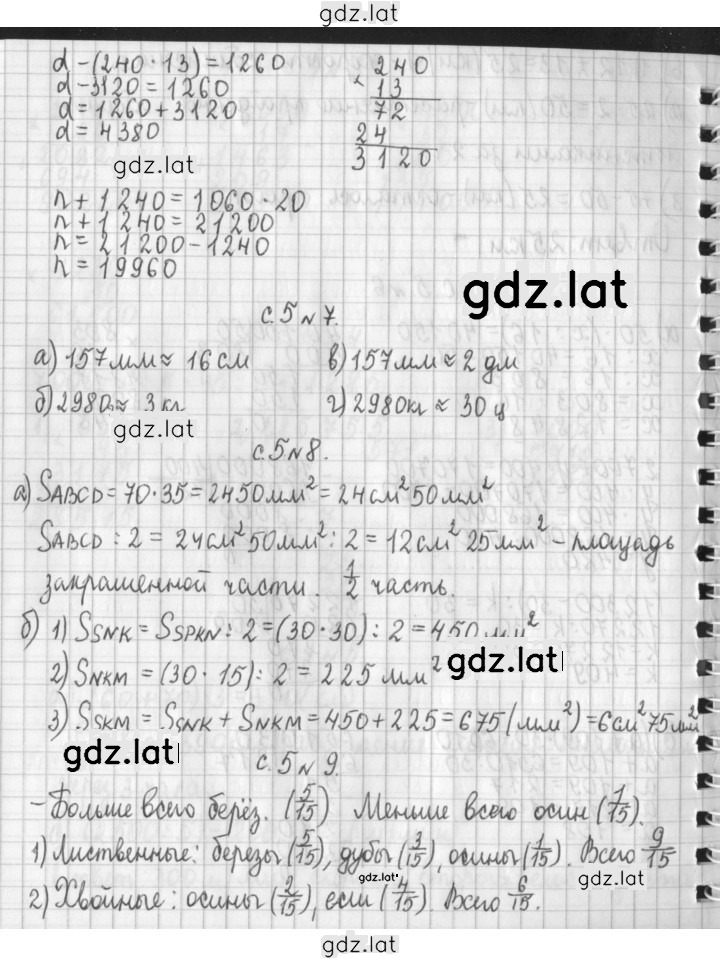 gdz.lat
d-(240·13)=1260
d-3120=1260
d=1260+3120
d=4380
240
× 13
72
24
3120
gdz.lat
n+1240=1060·20
n+1240=21200
n=21200-1240
n=19960
gdz.lat
с.5 №7.
а) 157мм≈ 16см в) 157мм≈2 дм
б) 2980г≈ 3 кг г) 2980кг≈30 ц
gdz.lat
с.5 №8.
а) SABCD=70·35=2450мм²=24см²50мм²
SABCD : 2 = 24см²50мм² : 2=12см² 25мм² – площадь
закрашенной части. 1/2 часть.
б) 1) SSNK=SSPKN : 2=(30·30) : 2=450мм²
2) SNKM=(30·15) : 2=225мм²
gdz.lat
3) SSKM=SSNK+SNKM=450+225=675(мм²)=6см²75мм²
gdz.lat
с.5 №9.
– Больше всего берёз. (5/15) Меньше всего осин (1/15).
1) Лиственные: березы (5/15), дубы (3/15), осины (1/15). Всего 9/15
gdz.lat
gdz.lat
2) Хвойные: осины (2/15), если (4/15). Всего 6/15.
gdz.lat